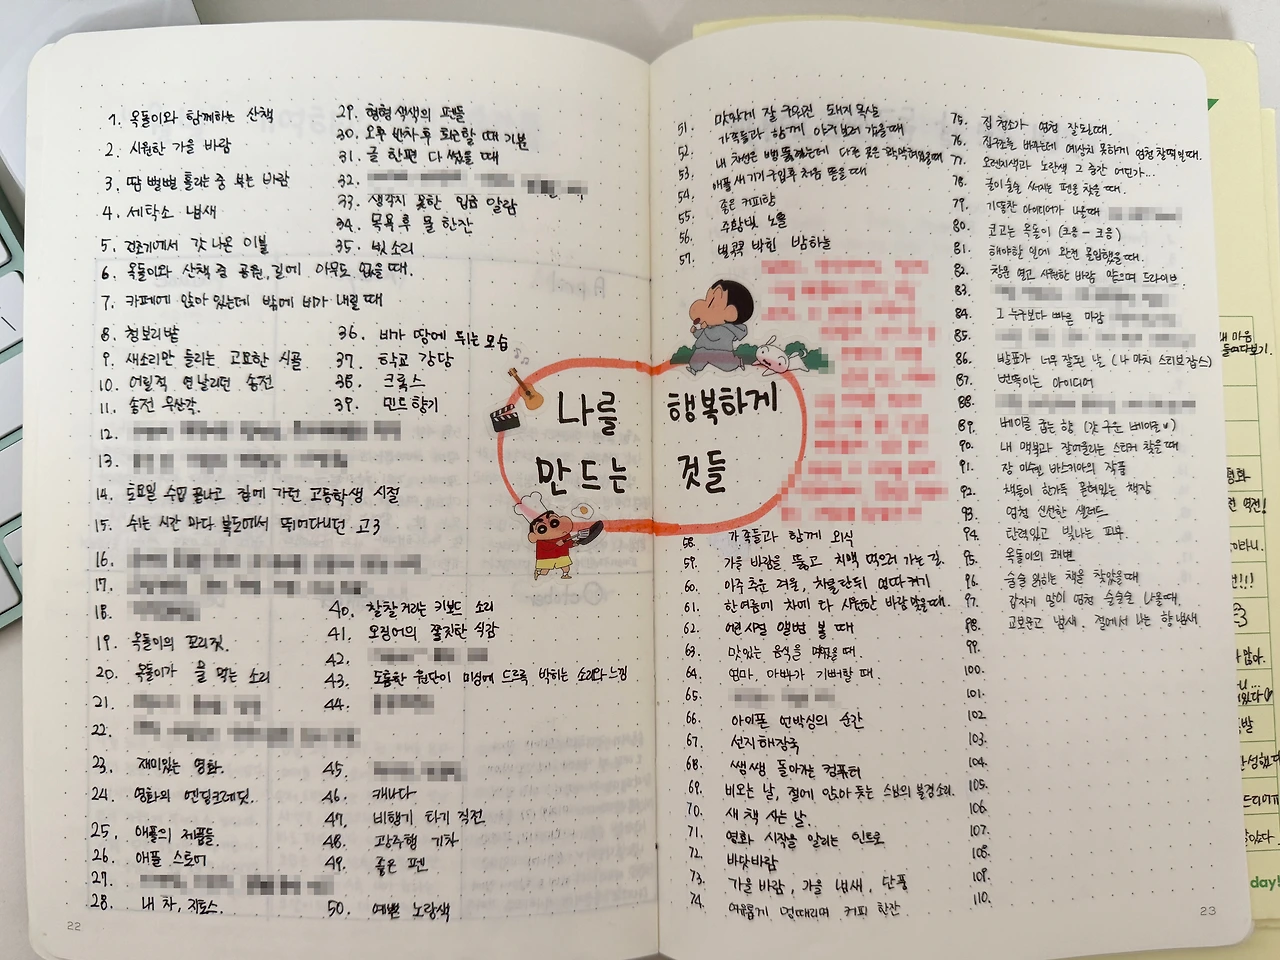 1. 옥돌이와 함께하는 산책
2. 시원한 가을 바람
3. 땀 뻘뻘 흘리는 중 부는 바람
4. 세탁소 냄새
5. 건조기에서 갓 나온 이불
6. 옥돌이와 산책 중 공원, 길에 아무도 없을 때.
7. 카페에 앉아 있는데 밖에 비가 내릴 때
8. 청보리밭
9. 새소리만 들리는 고요한 시골
10. 어릴적 연날리던 송전
11. 송전 우산각.
12.
13.
14. 토요일 수업 끝나고 집에 가던 고등학생 시절
15. 쉬는 시간 마다 복도에서 뛰어다니던 고3
16.
17.
18.
19. 옥돌이의 꼬리짓.
20. 옥돌이가 물 먹는 소리
21.
22.
23. 재미있는 영화.
24. 영화의 엔딩크레딧.
25. 애플의 제품들.
26. 애플 스토어
27.
28. 내 차,
29. 형형색색의 펜들
30. 오후 반차 후 퇴근할 때 기분
31. 글 한편 다 썼을 때
32.
33. 생각지 못한 입금 알람
34. 목욕 후 물 한잔
35. 빗소리
36. 비가 땅에 튀는 모습
37. 학교 강당
38. 크록스
39. 민드향기
40. 찰찰거리는 키보드 소리
41. 오징어의 쫄깃한 식감
42.
43. 도톰한 원단이 미싱에 드르륵 박히는 소리와 느낌
44.
45.
46. 캐나다
47. 비행기 타기 직전
48. 광주행 기차
49. 좋은 펜
50. 예쁜 노랑색
나를 행복하게
만드는 것들
51. 맛있게 잘 구워진 돼지목살
52. 가족들과 함께 야구보러 갔을때
53. 내 차선은 뻥 뚫렸는데 다른 곳은
54. 애플 새 기기 구입 후 처음 뜯을 때
55. 좋은 커피향
56. 주황빛 노을
57. 별 콕콕 박힌 밤하늘
58. 가족들과 함께 외식
59. 가을 바람을 뚫고 치맥 먹으러 가는 길.
60. 아주 추운 겨울, 차 문
61. 한여름에 차에 타 시원한 바람 맞을때.
62. 어린시절 앨범 볼 때
63. 맛있는 음식을 먹었을 때.
64. 엄마, 아빠가 기뻐할 때.
65.
66. 아이폰 언박싱의 순간
67. 선지해장국
68. 쌩쌩 돌아가는 컴퓨터
69. 비오는 날, 절에 앉아 듣는 스님의 불경소리.
70. 새 책 사는 날.
71. 영화 시작을 알리는 인트로
72. 바닷바람
73. 가을 바람, 가을 냄새, 단풍
74. 여유롭게 멍때리며 커피 한잔
75. 집 청소가 엄청 잘 됐을때.
76. 집구조를 바꾸는데 예상치 못하게 엄청 찰떡일 때.
77. 오렌지색과 노란색 그 중간 어딘가...
78. 술이술술 써지는 펜을 찾을 때.
79. 기똥찬 아이디어가 나올때
80. 코고는 옥돌이 (크응-크응)
81. 해야할 일에 완전 몰입했을때.
82. 창문 열고 시원한 바람 맞으며 드라이브
83.
84. 그 누구보다 빠른 마감
85.
86. 발표가 너무 잘된 날 (나 마치 스티브잡스)
87. 번뜩이는 아이디어
88.
89. 베이글 굽는 향 (갓 구운 베이글♥)
90. 내 맥북과 잘어울리는 스티커 찾을때
91. 장 미쉘 바스키아의 작품
92. 책들이 한가득 꽂혀있는 책장
93. 엄청 신선한 샐러드
94. 탄력있고 빛나는 피부.
95. 옥돌이의 쾌변
96. 술술 읽히는 책을 찾았을때
97. 갑자기 말이 엄청 술술술 나올때.
98. 교보문고 냄새. 절에서 나는 향 냄새
99.
100.
101.
102.
103.
104.
105.
106.
107.
108.
109.
110.
22
23
day!